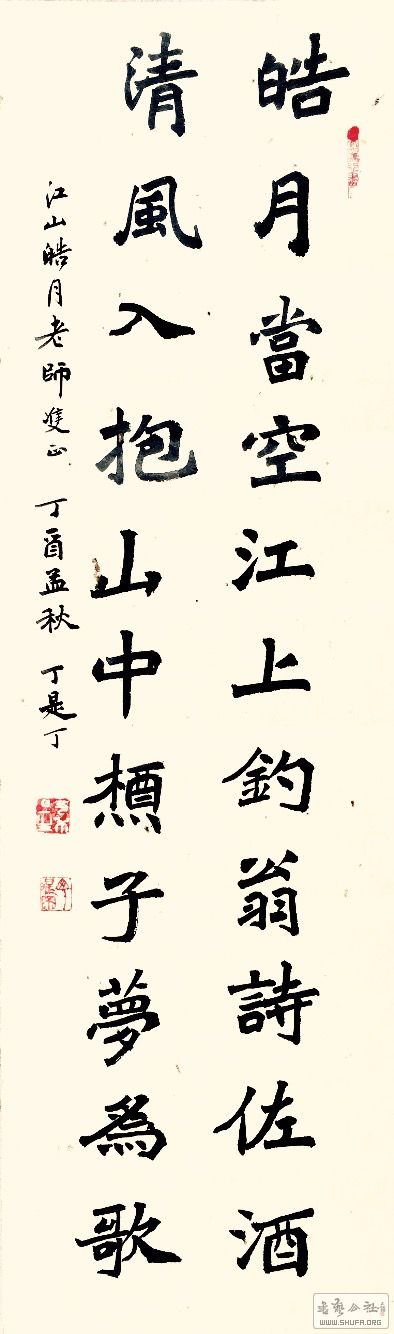 皓月當空江上釣翁詩佐酒
清風入抱山中樵子夢爲歌
江山皓月老師雙正 丁酉孟秋 丁是丁
书艺公社
WWW.SHUFA.ORG